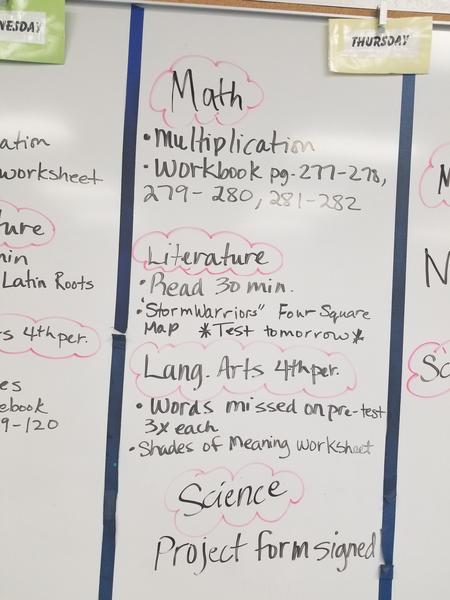 NESDAY
THURSDAY
ation
worksheet
ture
min
Latin Roots
s 4thper.
es
ebook
9-120
Math
• Multiplication
• Workbook pg-277-278,
279-280, 281-282
Literature
• Read 30 min.
• "StormWarriors" Four Square
Map *Test tomorrow*
Lang. Arts 4thper.
• Words missed on pre-test
3x each
• Shades of Meaning Worksheet
Science
Project form signed
M
N
Sc